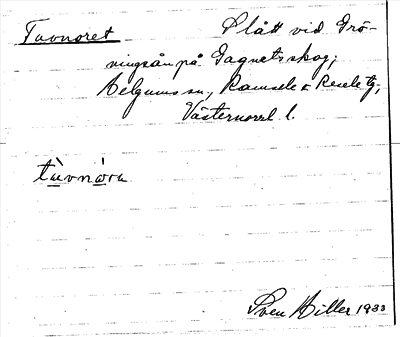 Tavnoret Slått vid Grö-
ningsån på Gagnets skog;
Helgums sn, Ramsele & Resele tg,
Västernorrl l.
tàvnòra
Sven Hiller 1933